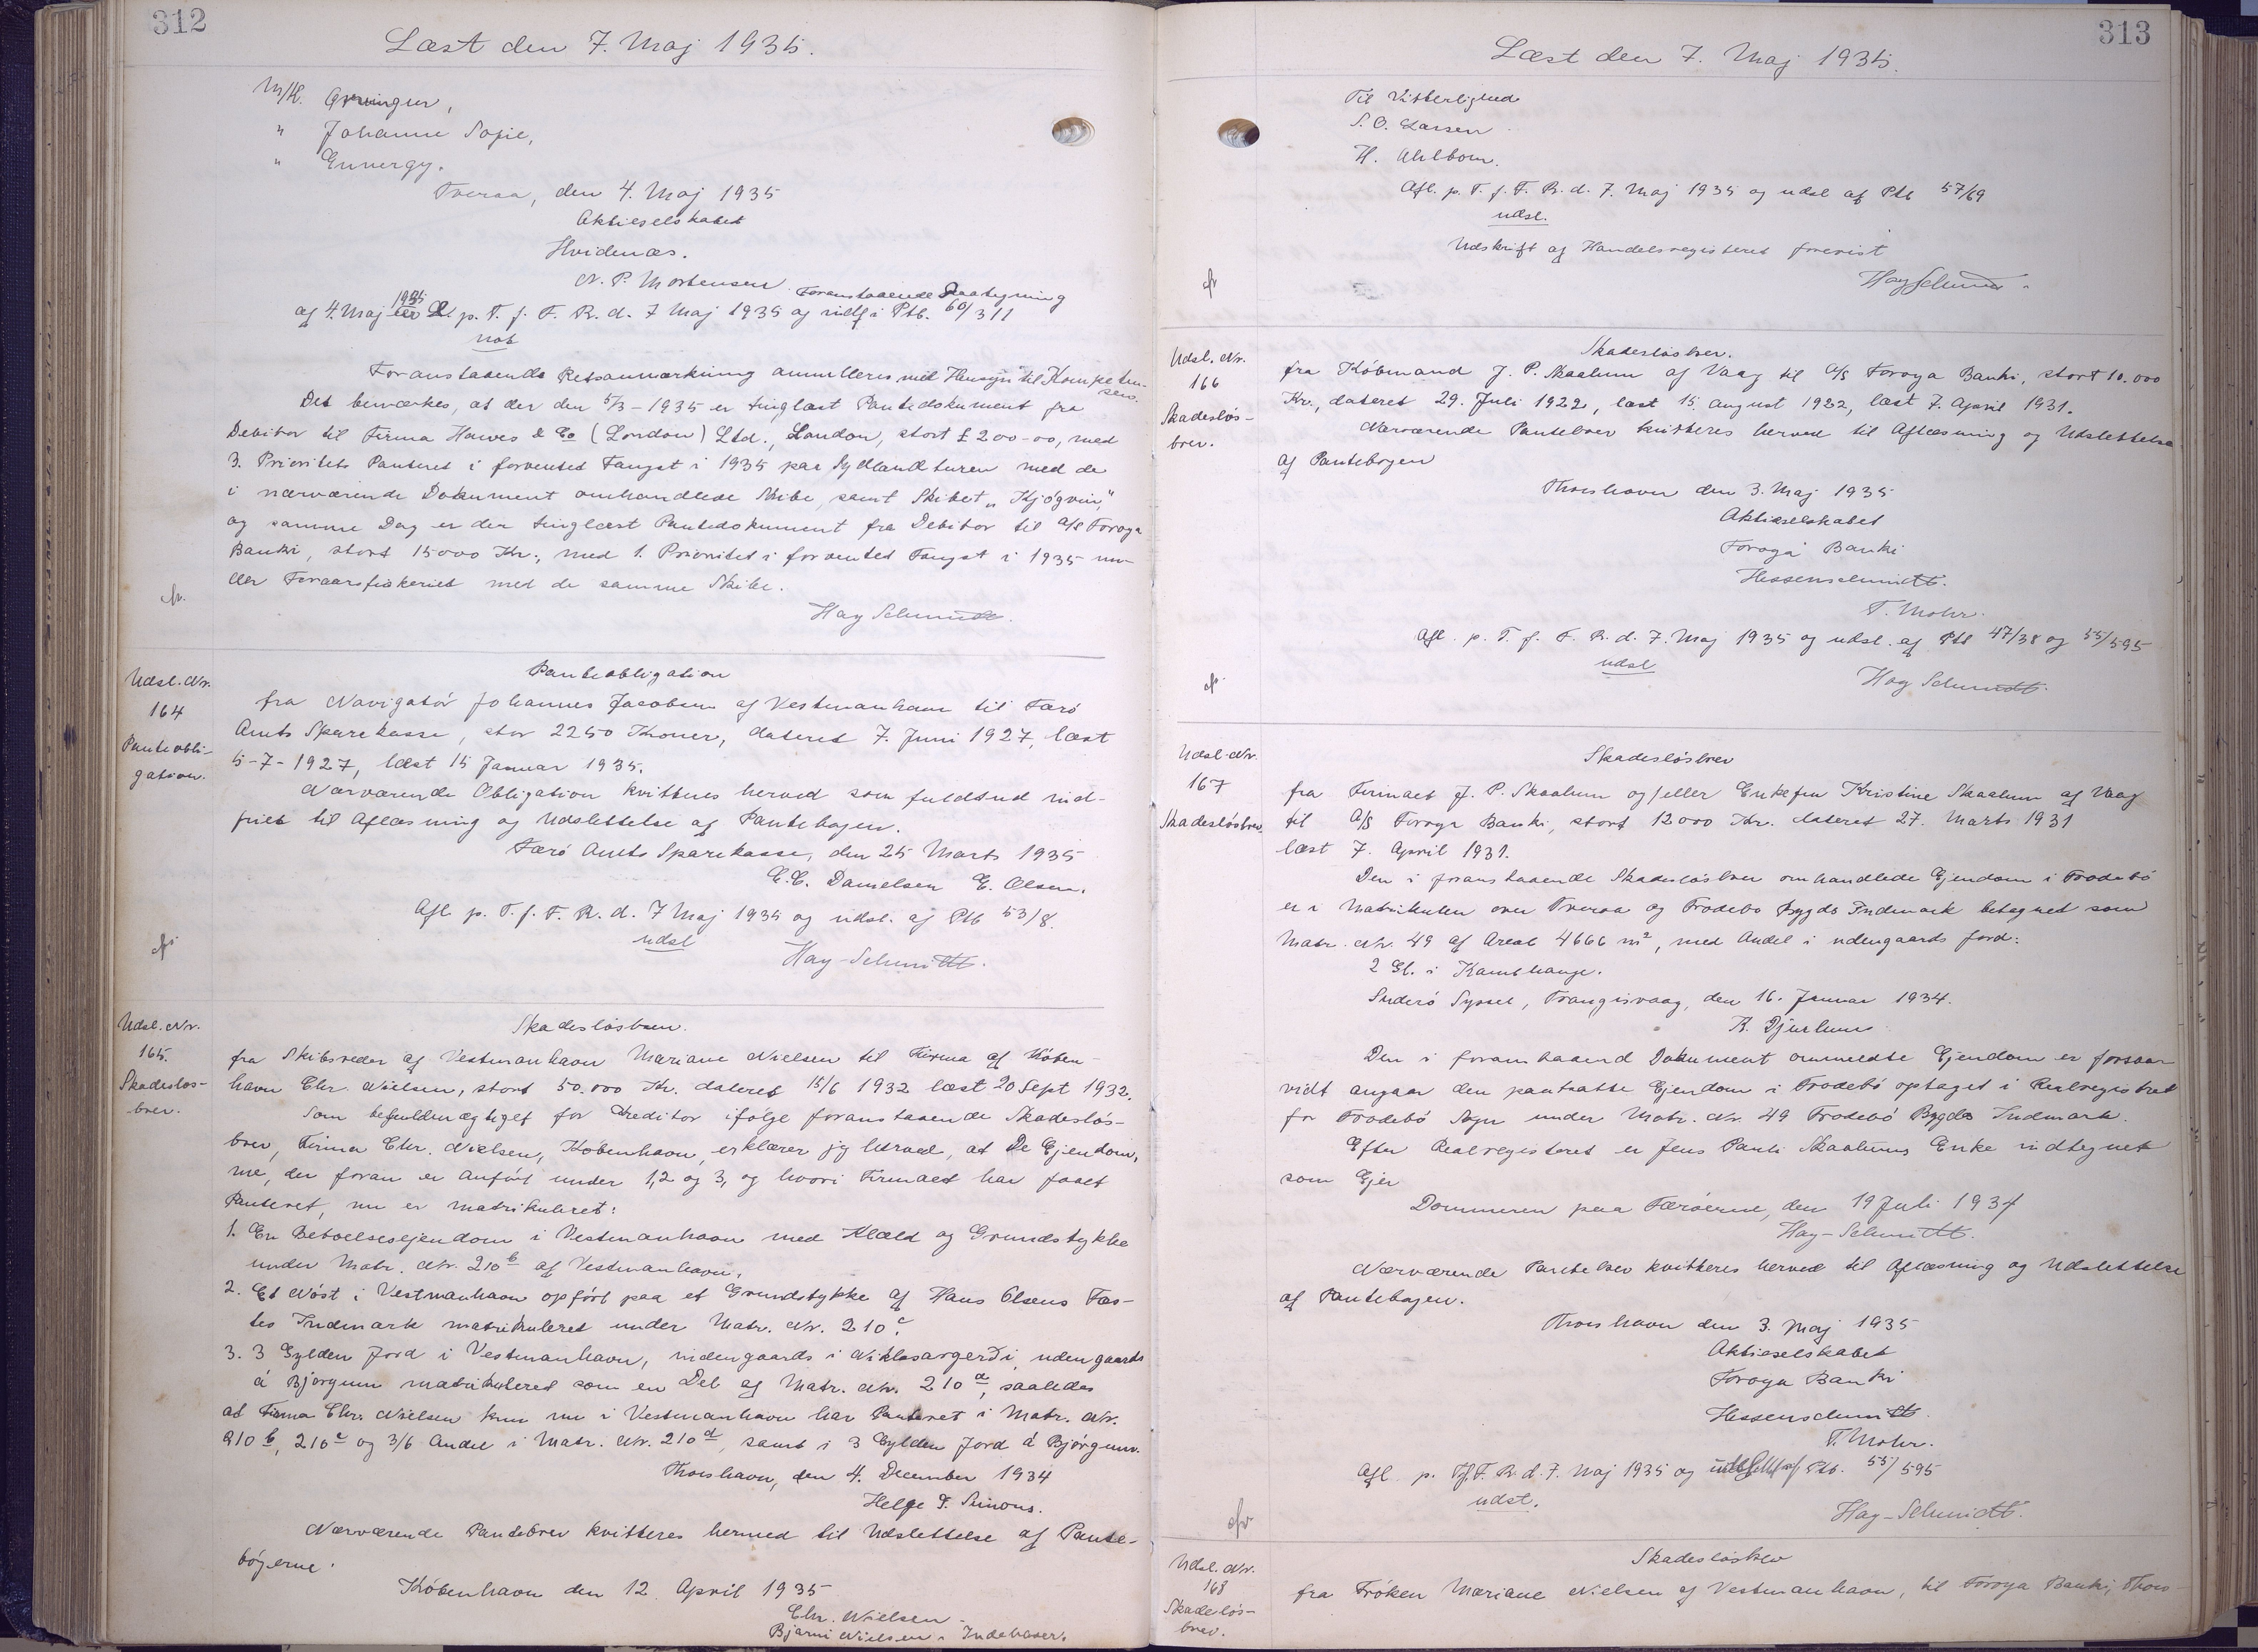 312
Læst den 7. Maj 1935.
M/K.
" Johanne Sofie,
" Ennergy.
Tveraa, den 4. Maj 1935
Aktieselskabet
Hvidenæs.
N. P. Mortensen. Foranstaaende Paategning
af 4. Maj 1935 p. T. f. F. R. d. 7 Maj 1935 og indf i Ptb. 60/311
not
Foranstaaende Retsanmærkning annulleres med Hensyn til Kompeten-
sen.
Det bemærkes, at der den 5/3-1935 er tinglæst Pantedokument fra
Debitor til Firma Hawes & Co (London) Ltd., London, stort £ 200-00, med
3. Prioritets Panteret i forventet Fangst i 1935 paa Sydlandturen med de
i nærværende Dokument omhandlede Skibe, samt Skibet „Kjógvin",
og samme Dag er der tinglæst Pantedokument fra Debitor til A/S Foroya
Banki, stort 15000 Kr., med 1. Prioritet i forventet Fangst i 1935 un-
der Foraarsfiskeriet med de samme Skibe.
Hay Schmidt.
Udsl. Nr.
164
Panteobli-
gation.
Panteobligation
fra Navigatør Johannes Jacobsen af Vestmanhavn til Færø
Amts Sparekasse, stor 2250 Kroner, dateret 7. Juni 1927, læst
5-7-1927, læst 15 Januar 1935.
Nærværende Obligation kvitteres herved som fuldtud ind-
friet til Aflæsning og Udslettelse af Pantebogen.
Færø Amts Sparekasse, den 25 Marts 1935
C.C. Danielsen E. Olsen.
Afl. p. T. f. F. R. d. 7 Maj 1935 og udsl. af Ptb 53/8.
udsl
Hay-Schmidt.
Udsl. Nr.
165.
Skadesløs-
brev.
Skadesløsbrev.
fra Skibsreder af Vestmanhavn Mariane Nielsen til Firma af Køben-
havn Chr. Nielsen, stort 50.000 Kr. dateret 15/6 1932 læst 20 Sept 1932.
Som befuldmægtiget for Kreditor ifølge foranstaaende Skadesløs-
brev, Firma Chr. Nielsen, København, erklærer jeg herved, at De Ejendom-
me, der foran er anført under 1,2 og 3, og hvori Firmaet har faaet
Panteret, nu er matrikuleret:
1. En Beboelsesejendom i Vestmanhavn med Kæld og Grundstykke
under Matr. Nr. 210 b af Vestmanhavn,
2. Et Nøst i Vestmanhavn opført paa et Grundstykke af Hans Olsens Fæs-
tes Indmark matrikuleret under Matr. Nr. 210 c.
3. 3 Gylden Jord i Vestmanhavn, indengaards i Niklasargerði, udengaards
á Bjørgum matrikuleret som en Del af Matr. Nr. 210 a, saaledes
at Firma Chr. Nielsen kun nu i Vestmanhavn har Panteret i Matr. Nr.
210 b, 210 c og 3/6 Andel i Matr. Nr. 210 a, samt i 3 Gylden Jord á Bjørgum.
Thorshavn, den 4. December 1934
Helge F. Simons.
Nærværende Pantebrev kvitteres hermed til Udslettelse af Pante-
bøgerne.
København den 12 April 1935
Chr. Nielsen
Bjarni Nielsen. Indehaver.
313
Læst den 7. Maj 1935.
Til Vitterlighed
S. O. Larsen
H. Ahlbom.
Afl. p. T. f. F. R. d. 7. Maj 1935 og udsl af Ptb 57/69
udsl.
Udskrift af Handelsregisteret forevist
Hay Schmidt.
Udsl. Nr.
166
Skadesløs-
brev.
Skadesløsbrev.
fra Købmand J. P. Skaalum af Vaag til A/S Foroya Banki, stort 10.000
Kr., dateret 29. Juli 1922, læst 15 August 1922, læst 7. April 1931.
Nærværende Pantebrev kvitteres herved til Aflæsning og Udslettelse
af Pantebogen
Thorshavn den 3. Maj 1935
Aktieselskabet
Foroya Banki
Hessenschmidt.
T. Mohr.
Afl. p. T. f. F. R. d. 7. Maj 1935 og udsl. af Ptb 47/38 og 55/595
udsl
Hay Schmidt.
Udsl. Nr.
167
Skadesløsbrev.
Skadesløsbrev
fra Firmaet J. P. Skaalum og/eller Enkefru Kristine Skaalum af Vaag
til A/S Foroya Banki, stort 12000 Kr. dateret 27. Marts 1931
læst 7. April 1931.
Den i foranstaaende Skadesløsbrev omhandlede Ejendom i Frodebø
er i Matrikulen over Tveraa og Frodebø Bygds Indmark betegnet som
Matr. Nr. 49 af Areal 4666 m², med Andel i udengaards Jord:
2 Gl. i Kambhauge.
Suderø Syssel, Trangisvaag, den 16. Januar 1934.
R. Djurhuus
Den i foranstaaend Dokument ommeldte Ejendom er forsaa-
vidt angaar den pantsatte Ejendom i Frodebø optaget i Realregistret
for Frodebø Sogn under Matr. Nr. 49 Frodebø Bygds Indmark.
Efter Realregisteret er Jens Pauli Skaalums Enke indtegnet
som Ejer
Dommeren paa Færøerne, den 19 Juli 1934
Hay-Schmidt.
Nærværende Pantebrev kvitteres herved til Aflæsning og Udslettelse
af Pantebogen.
Thorshavn den 3. Maj 1935
Aktieselskabet
Foroya Banki
Hessenschmidt.
T. Mohr.
Afl. p. T. f. F. R. d. 7. Maj 1935 og Ptb. 55/595
udst.
Hay-Schmidt.
Udsl. Nr.
168
Skadesløs-
brev.
Skadesløsbrev
fra Frøken Mariane Nielsen af Vestmanhavn, til Foroya Banki, Thors-